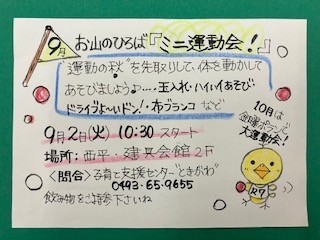 9月 お山のひろば『ミニ運動会!』
"運動の秋"を先取りして、体を動かして
あそびましょう♪…玉入れ・ハイハイあそび・
ドライブよーいドン!・布ブランコ など
9月2日(火) 10:30 スタート
場所: 西平・建具会館2F
〈問合〉子育て支援センター"ときがわ"
0493-65-9655
飲み物をご持参下さいね
10月は
大運動会!
R7